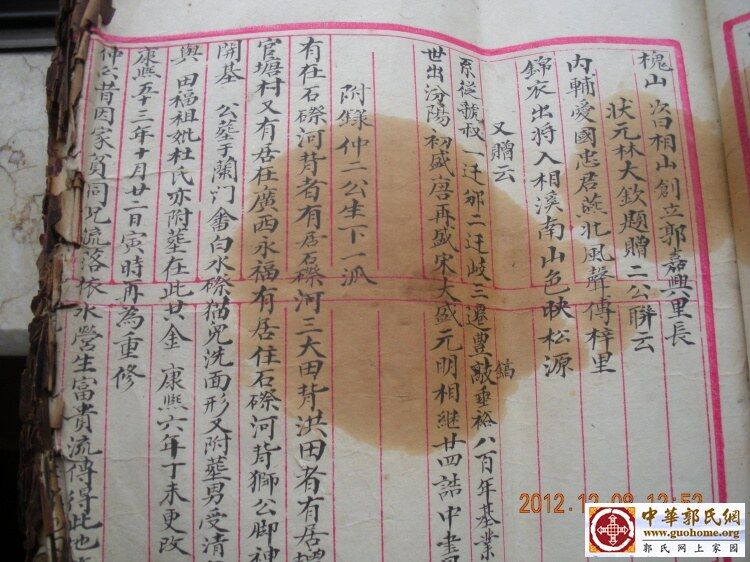 槐山 次曰相山創立郭嘉興里長
狀元林大欽題贈二公聯云
內輔愛國忠君燕北風聲傳梓里
錦衣出將入相溪南山色映松源
又贈云
系從虢叔一迁邠二迁岐三遷豐敲垂裕八百年基業
鎬
世出汾陽初盛唐再盛宋大盛元明相繼廿四誥中書
附錄仲二公生下一派
有在石磜河背者有居石磜河三大田背洪田者有居
官塘村又有居在廣西永福有居住石磜河背獅公脚神
開基 公葬于蘭门畲白水磜猫兒洗面形又附葬男受清
與田福祖妣杜氏亦附葬在此共金 康熙六年丁未更改
康熙五十三年十月廿二日寅時再為重修
仲公昔因家貧同兄流落依永營生富貴流傳得此也
2012.12.08 12:52
中華郭氏網
www.guohome.org
郭氏网上家园